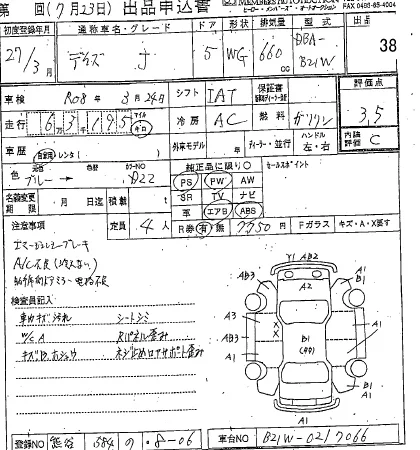 第 回(7月23日)出品申込書
FAX 0485-85-4004
初度登録年月 通称車名・グレード ドア 形状 排気量 型式 出品
27/3月 デイズ J 5 WG 660cc DBA-B21W 38
車検 R08年3月24日 シフト IAT 保証書 評価点
走行 6万3千195 マイル キロ 冷房 AC 燃料 ガソリン 3.5
車歴 自家用 レンタ 外車モデル ディーラー・並行 ハンドル 左・右 内装評価 C
色 グレー→ カラーNO DZ2 純正品に限り○ セールスポイント
PS PW AW
名義変更期限 月 日迄 積載 t SR TV ナビ
革 エアB ABS
注意事項 定員 4人 R券 有 無 7350円 Fガラス キズ・A・X要す
エマージェンシーブレーキ
A/C不良(冷えない)
検査員記入
車内キズ汚れ シートシミ
W/C A Rパネル歪み
Y1 AB2
A2
A1
A3
AB3
A1
B1
A1
A3
B1
A1
A1
登録NO 熊谷 584 の ・8-06 車台NO B21W-0217066